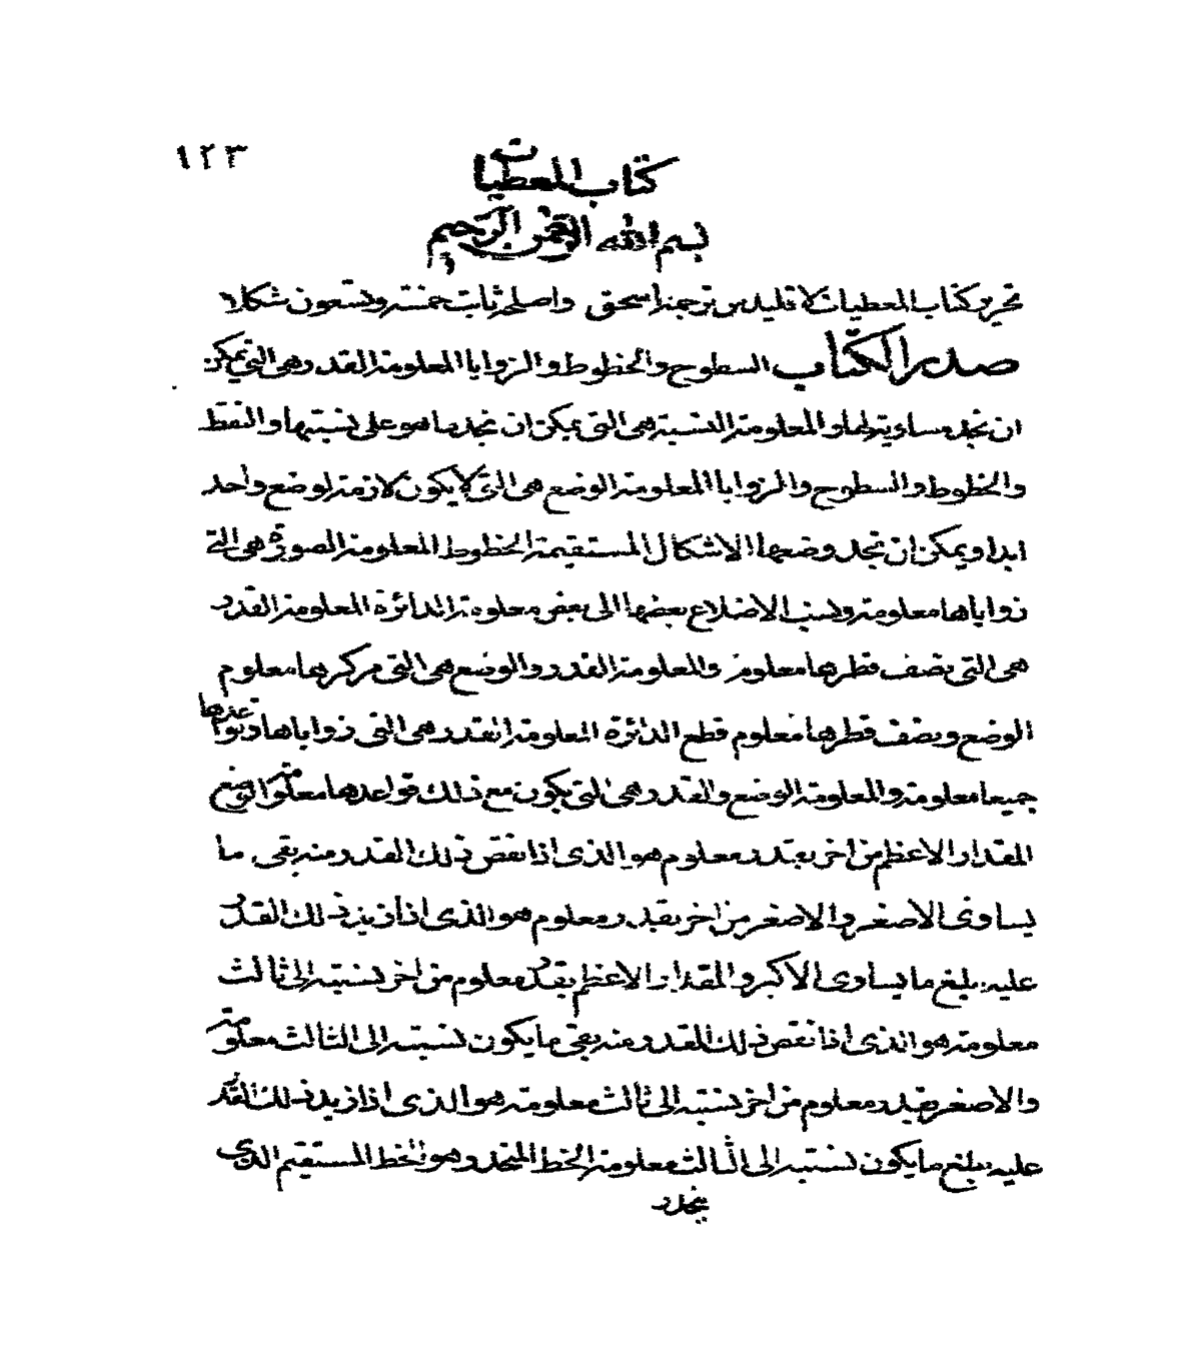 ١٢٣
كتاب المعطيات
بسم الله الرحمن الرحيم
تحرير كتاب المعطيات لاقليدس ترجمة اسحق واصلحه ثابت خمسة وتسعون شكلا
صدر الكتاب السطوح والخطوط والزوايا المعلومة القدر وهى التى يمكن
ان نجد مساوية لها والمعلومة النسبة هى التى يمكن ان نجد ما هو على نسبتها والنقط
والخطوط والسطوح والزوايا المعلومة الوضع هى التى لا يكون لازمة لوضع واحد
ابدا ويمكن ان نجد وضعها الاشكال المستقيمة الخطوط المعلومة الصورة هى التى
زواياها معلومة ونسب الاضلاع بعضها الى بعض معلومة الدائرة المعلومة القدر
هى التى نصف قطرها معلوم والمعلومة القدر والوضع هى التى مركزها معلوم
الوضع ونصف قطرها معلوم قطع الدائرة المعلومة القدر هى التى زواياها وقواعدها
جميعا معلومة والمعلومة الوضع والقدر هى التى يكون مع ذلك قواعدها معلومة الوضع
المقدار الاعظم من اخر بقدر معلوم هو الذى اذا نقص ذلك القدر منه بقى ما
يساوى الاصغر والاصغر من اخر بقدر معلوم هو الذى اذا زيد ذلك القدر
عليه بلغ ما يساوى الاكبر والمقدار الاعظم بقدر معلوم من اخر نسبته الى ثالث
معلومة هو الذى اذا نقص ذلك القدر منه بقى ما يكون نسبته الى الثالث معلومة
والاصغر بقدر معلوم من اخر نسبته الى ثالث معلومة هو الذى اذا زيد ذلك القدر
عليه بلغ ما يكون نسبته الى الثالث معلومة الخط المتحدر وهو الخط المستقيم الذى
ينحدر